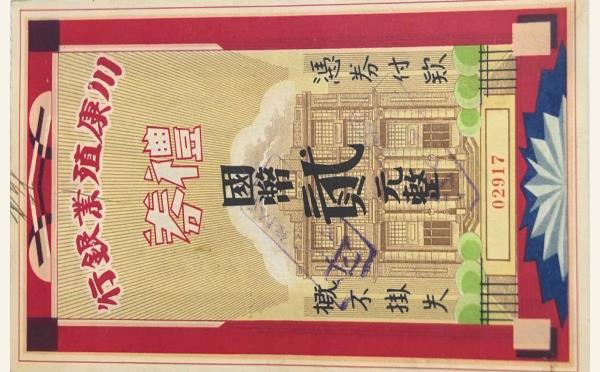 川康殖業銀行
禮券
憑券付款
國幣貳元整
概不掛失
02917